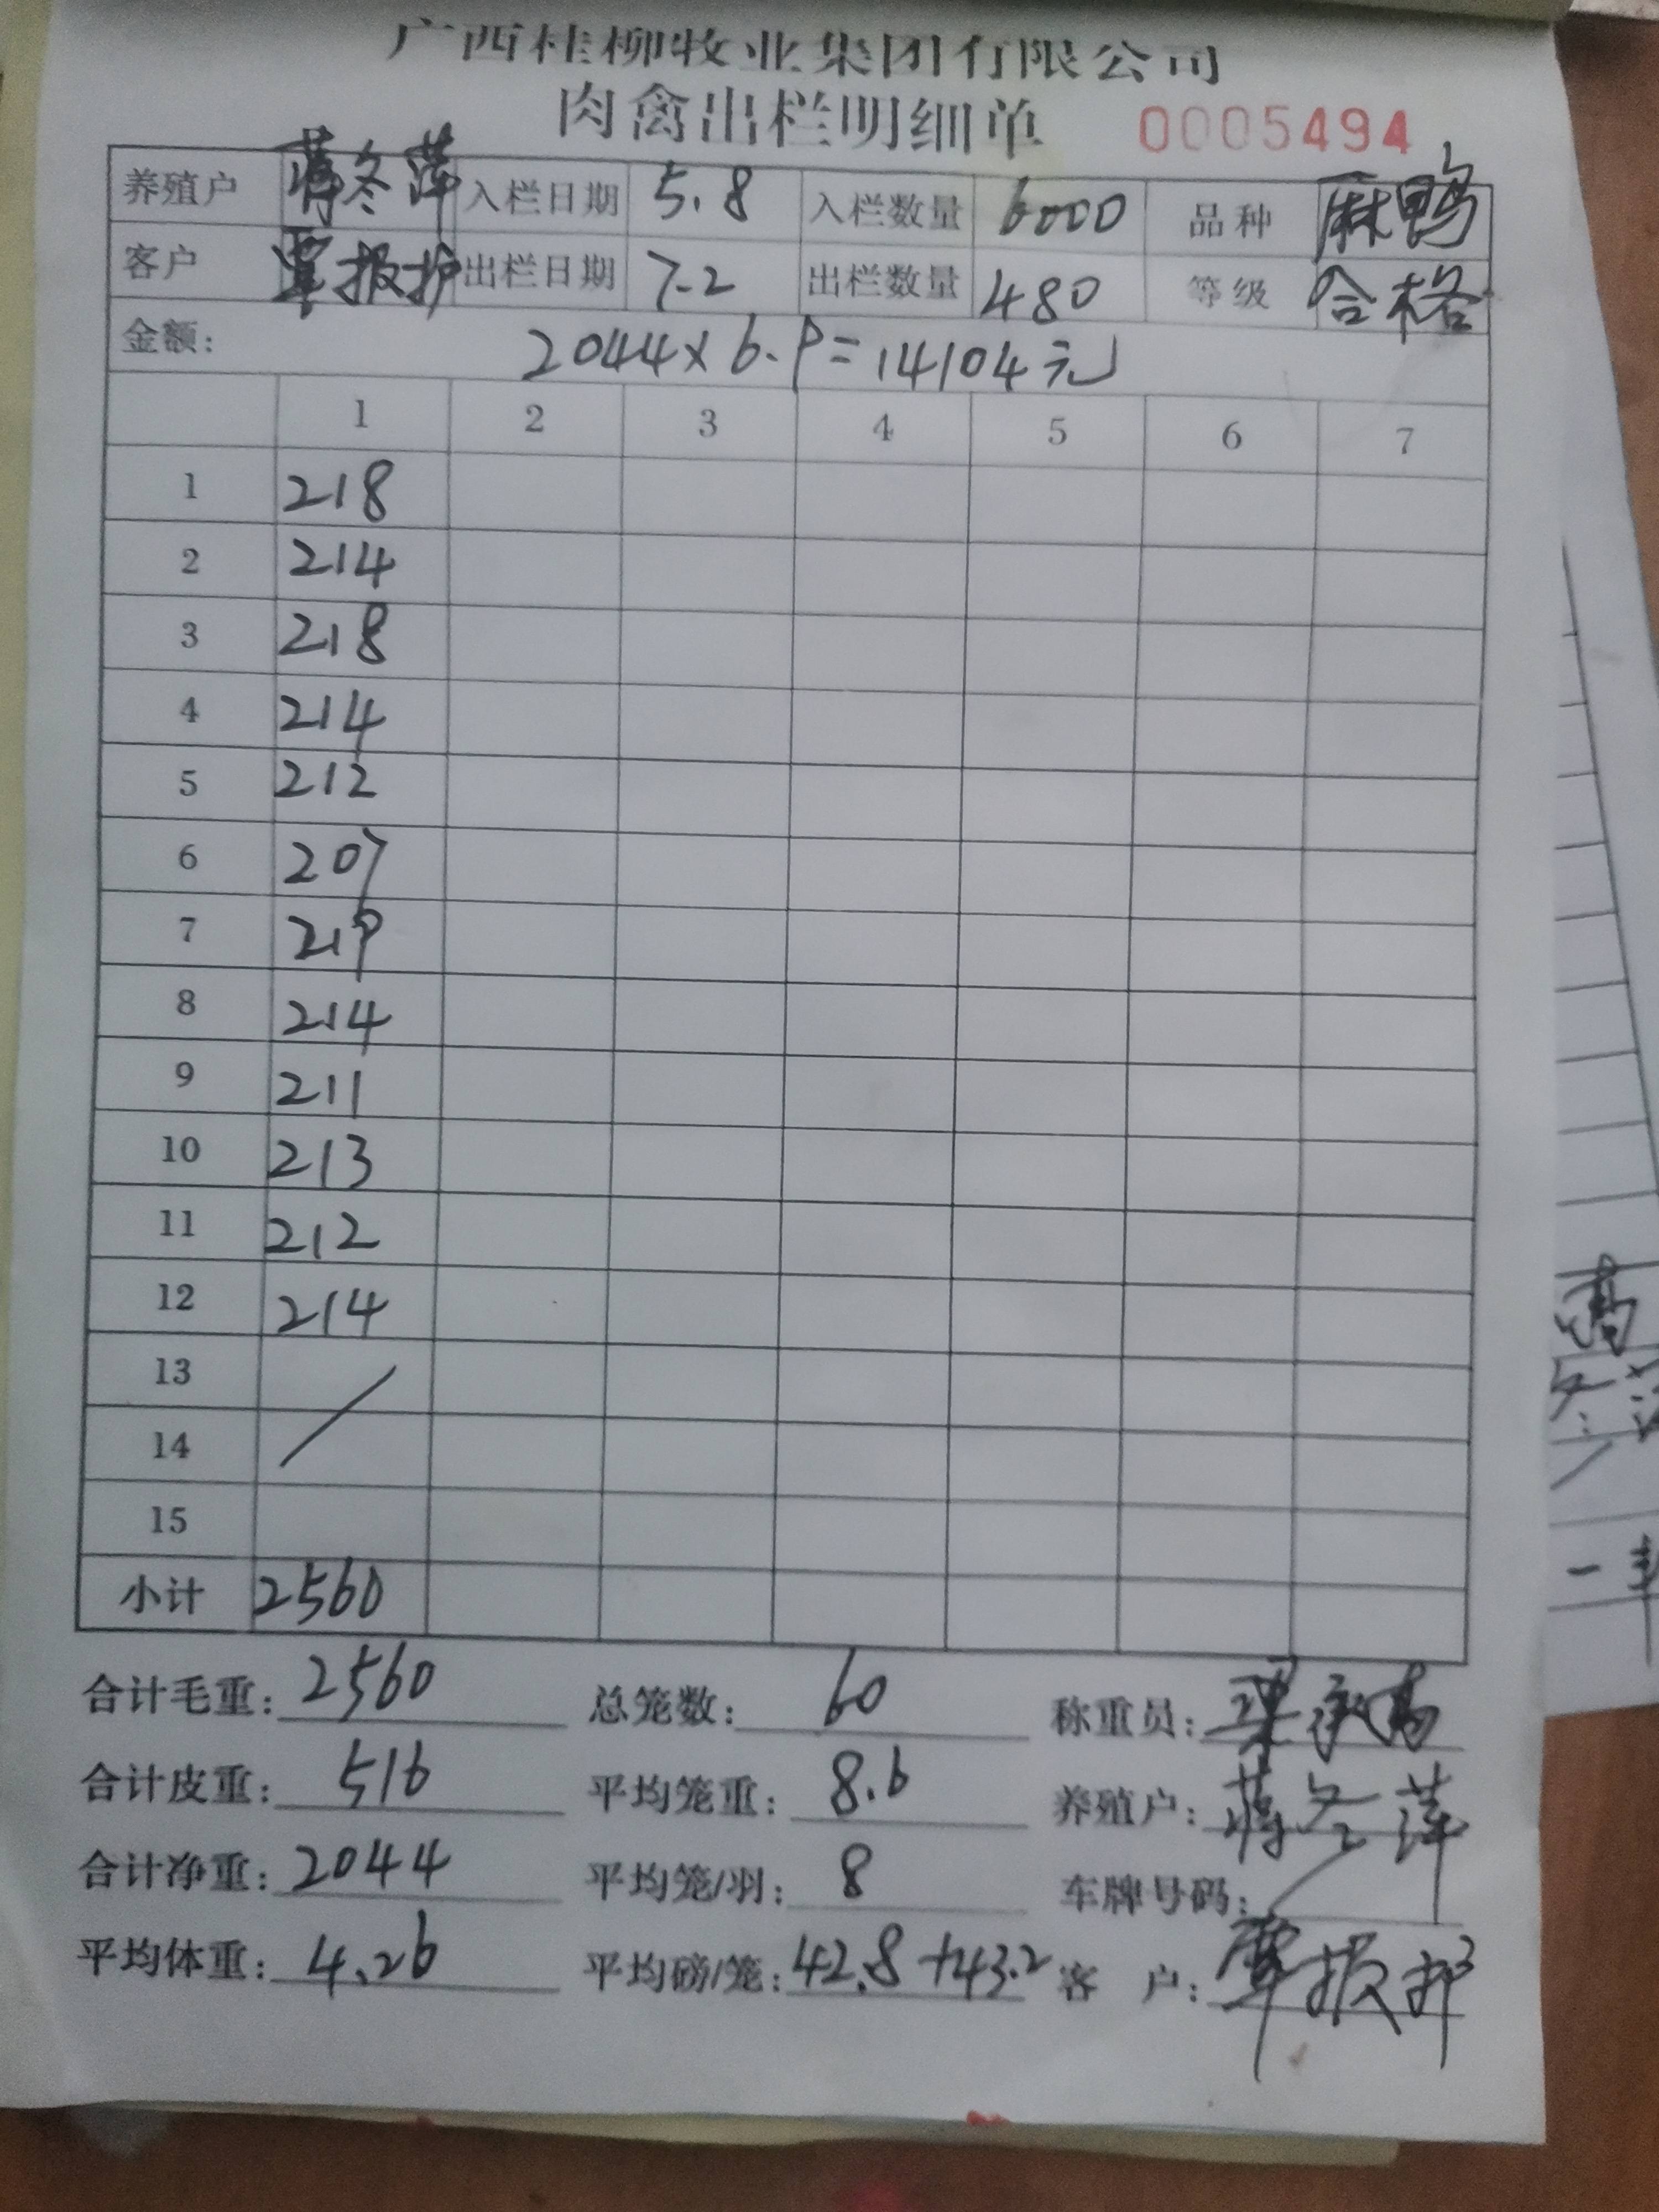 广西桂柳牧业集团有限公司
肉禽出栏明细单 0005494
养殖户 蒋冬萍 入栏日期 5.8 入栏数量 6000 品种 麻鸭
客户 覃报护 出栏日期 7.2 出栏数量 480 等级 合格
金额: 2044×6.9=14104元
1 2 3 4 5 6 7
1 218
2 214
3 218
4 214
5 212
6 207
7 219
8 214
9 211
10 213
11 212
12 214
13
14
15
小计 2560
合计毛重: 2560 总笼数: 60 称重员:
合计皮重: 516 平均笼重: 8.6 养殖户: 蒋冬萍
合计净重: 2044 平均笼/羽: 8 车牌号码:
平均体重: 4.26 平均磅/笼: 42.8+43.2 客 户: 覃报护